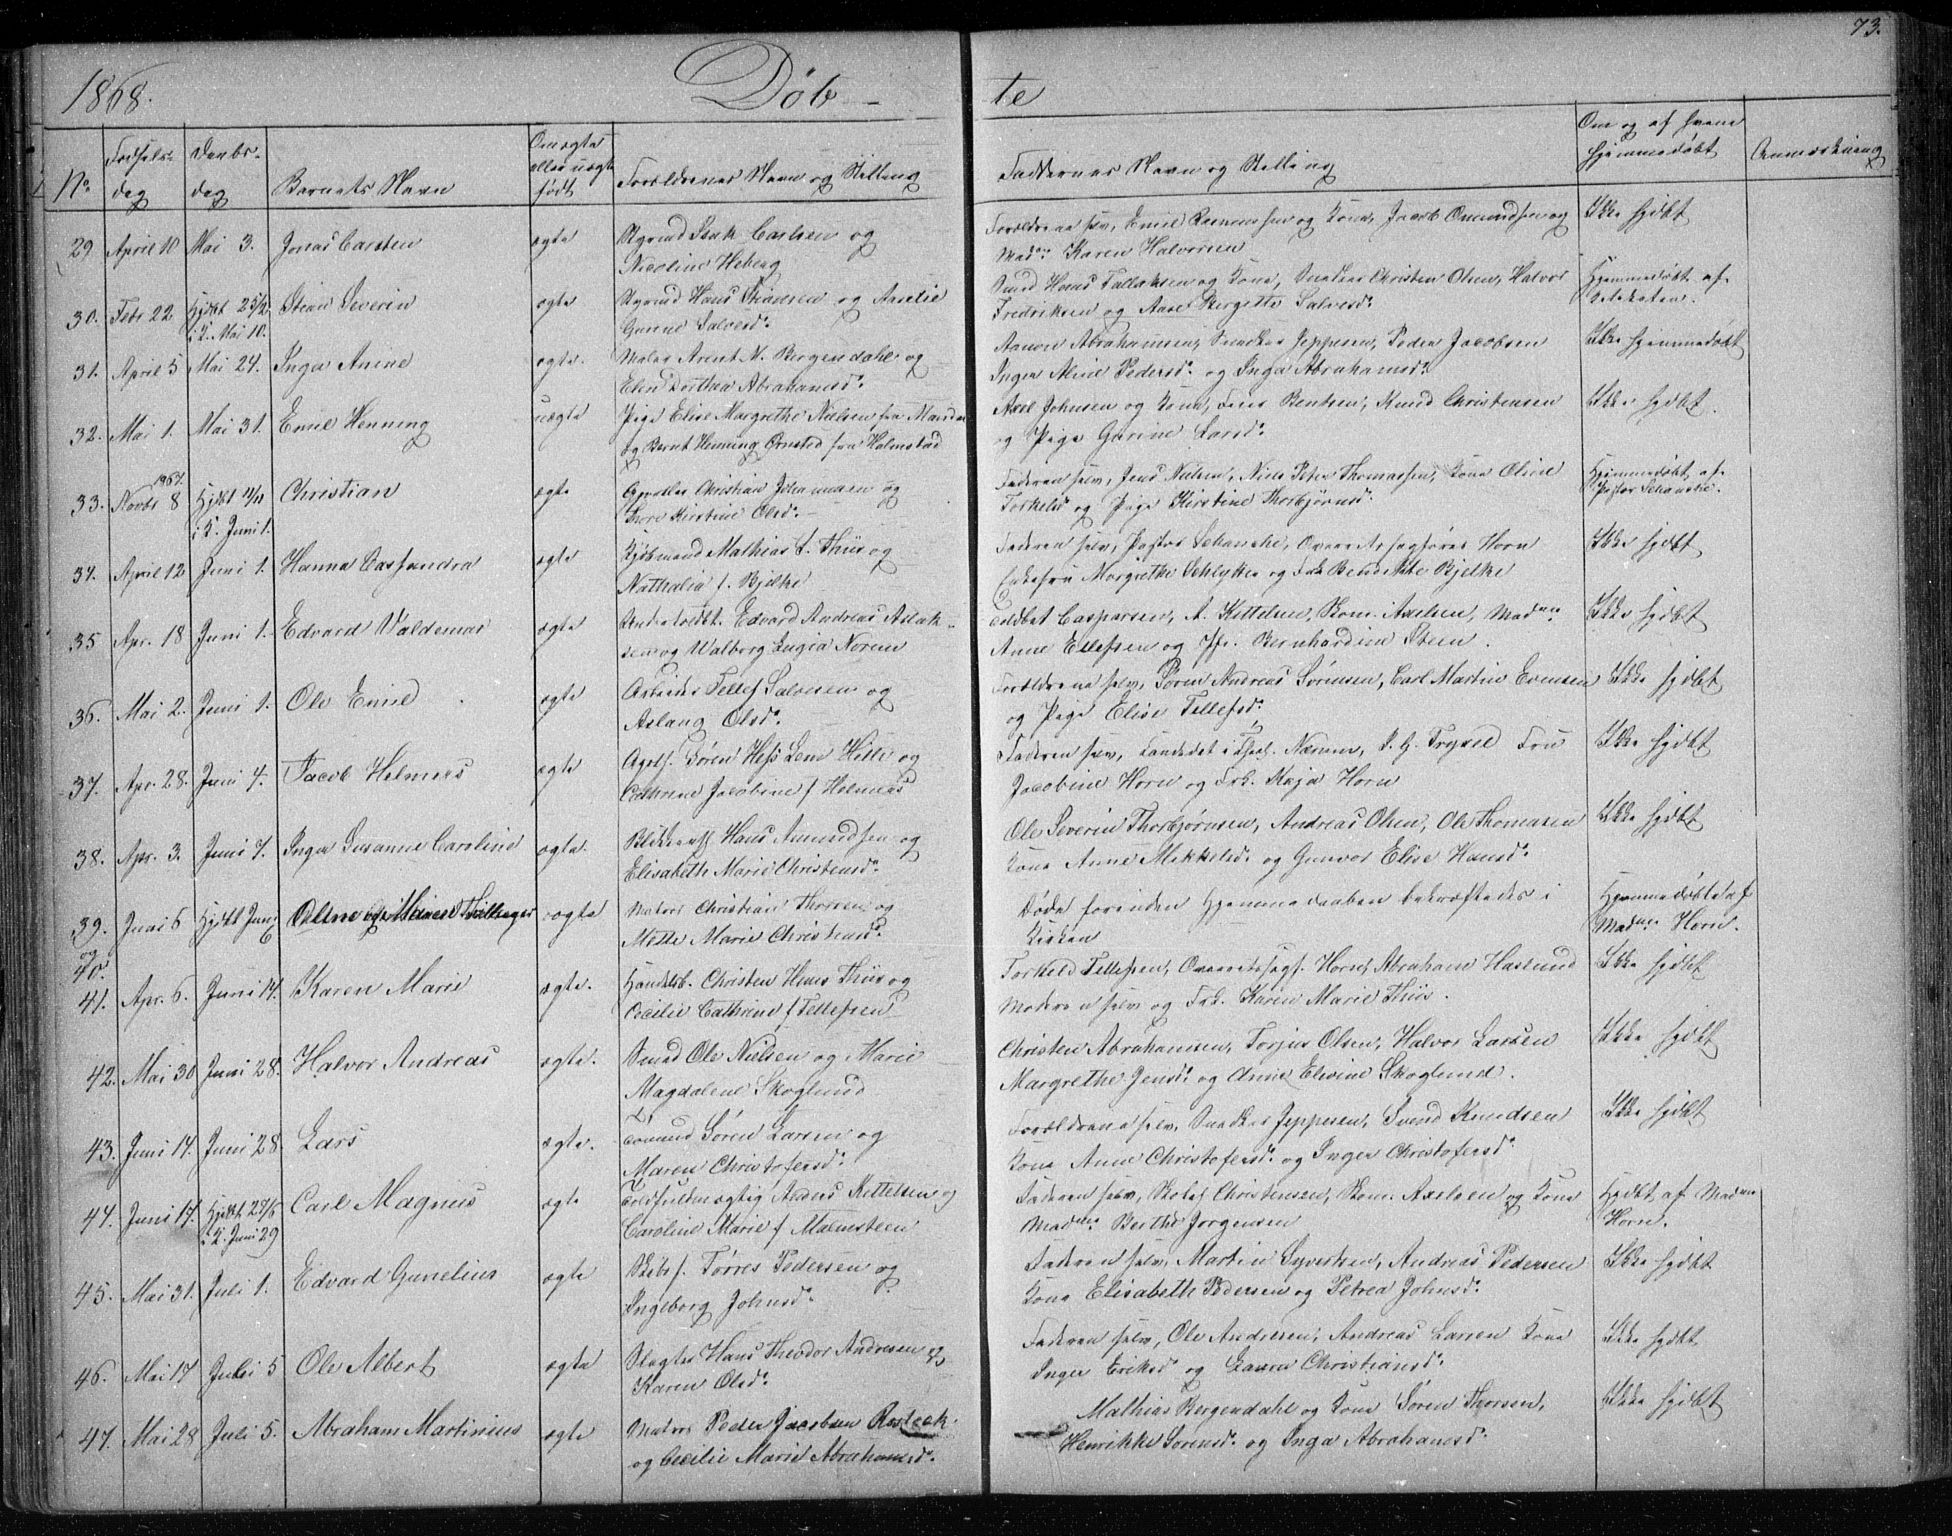 73.
1868.
Døb-
te
No
Fødsels-
dag
Daabs-
dag
Barnets Navn
Om ægte
eller uægte
født
Forældrenes Navn og Stilling
Faddernes Navn og Stilling
Om og af hvem
hjemmedøbt
Anmærkning
29 April 10 Mai 3. Jonas Carsten ægte
Isak Carlsen og
Nicoline Heberg
Forældrene selv, Emil Rasmussen og Kone, Jacob Omundsen og
Madm: Karen Halvorsen
Ikke hjdbt
30. Febr 22 Hjdbt 25/2 Stian Severin ægte
i K. Mai 10.
Hans Stiansen og Amalie
Gurine Salvesdr
Smed Hans Tallaksen og Kone, Snedker Christen Olsen, Halvor
Fredriksen og Aase Bergitte Salvesdr
Hjemmedøbt af
31. April 5 Mai 24. Inga Anine ægte.
Maler Arent N. Bergendahl og
Elen Dorthea Abrahamsdr
Aanon Abrahamsen, Snedker Jeppesen, Peder Jacobsen
Inger Aline Pedersdr og Inga Abrahamsdr
Ikke hjemmedøbt
32. Mai 1. Mai 31. Emil Henning uægte
Pige Elise Margrethe Nielsen fra Mandal
og Bernt Henning Ornsted fra Halmstad
Axel Johnsen og Kone, Bentsen, Knud Christensen
og Pige Gurine Larsdr
Ikke hjdbt.
33. 1867. Novbr 8 Hjdbt 11/11 Christian ægte
i K. Juni 1.
Christian Johannesen og
Kirstine Olsdr
Faderen selv, Jens Nielsen, Niels Peter Thomassen, Kone Oline
Torkelsd og Pige Kirstine Thorbjørnsdr
Hjemmedøbt af
Pastor Schanche.
34. April 12 Juni 1. Hanna Cassandra ægte
Kjøbmand Mathias F. Thiis og
Nathalia f. Bjelke
Faderen selv, Pastor Schanche, Overretssagfører Horn
Enkefru Margrethe Schlytter og Frk Benedikte Bjelke
Ikke hjdbt
35 Apr. 18 Juni 1. Edvard Valdemar ægte
Undertoldbt. Edvard Andreas Aslak-
sen og Walborg Ingia Norum
Toldbet Caspersen, A. Kittelsen, Skom. Axelsen, Madm:
Anne Ellefsen og Jfr. Bernhardine Steen.
Ikke hjdbt
36. Mai 2. Juni 1. Ole Emil ægte
Arbeider Tellef Salvesen og
Aslaug Olsdr
Forældrene selv, Søren Andreas Sørensen, Carl Martin Evensen
og Pige Elise Tellefsdr
Ikke hjdbt
37. Apr. 28. Juni 4. Jacob Helmers ægte
Søren Hess Lem Hille og
Cathrine Jacobine f Helmers
Faderen selv, Candidat i Theol. Næsman, P. G. Trysel Fru
Jacobine Horn og Frk. Kaja Horn
Ikke hjdbt
38. Apr. 3. Juni 7. Inga Susanne Caroline ægte.
Hans Amundsen og
Elisabeth Marie Christensdr
Ole Severin Thorbjørnsen, Andreas Olsen, Ole Thomasen
Kone Anne Mikkelsd. og Gunvor Elise Hansdr
Ikke hjdbt
39. Juni 6 Hjdbt Juni Oline og Maren Tvillinger ægte
og 6
40.
Matros Christian Thorsen og
Mette Marie Christensdr
Døde forinden Hjemmedaaben bekræftedes i
Kirken
Hjemmedøbte af
Madm: Horn.
41. Apr. 6. Juni 14. Karen Marie ægte.
Handelsb. Christen Hans Thiis og
Cecilie Cathrine f Tellefsen
Torkeld Tellefsen, Overretssagf. Horn, Abraham Haslund
Moderen selv og Frk. Karen Marie Thiis.
Ikke hjdbt
42. Mai 30 Juni 28. Halvor Andreas ægte.
Smed Ole Nielsen og Marie
Magdalene Skoglund
Christen Abrahamsen, Torjus Olsen, Halvor Larsen
Margrethe Jensdr og Anne Elivine Skoglund.
Ikke hjdbt
43. Juni 14. Juni 28. Lars ægte.
Sömand Sören Larsen og
Maren Christofersdr
Forældrene selv, Snedker Jeppesen, Svend Knudsen
Kone Anne Christofersdr og Inger Christofersd
Ikke hjdbt
44. Juni 17. Hjdbt 27/6 Carl Magnus ægte
i K. Juni 29
Toldfuldmægtig Anders Kittelsen og
Caroline Marie f Malmsteen
Faderen selv, Christensen, Skom. Axelsen og Kone
Madm: Berthe Jørgensen
Hjdbt af Madm:
Horn.
45. Mai 31. Juli 1. Edvard Gunelius ægte
Skibsf. Tørres Pedersen og
Ingeborg Johnsdr
Faderen selv, Martin Syvertsen, Andreas Pedersen
Kone Elisabeth Pedersen og Petrea Johnsdr
Ikke hjdbt
46. Mai 17 Juli 5 Ole Albert ægte
Slagter Hans Theodor Andresen og
Karen Olsdr
Faderen selv, Ole Andersen, Andreas Larsen Kone
Inger Eriksd og Laura Christiansdr
Ikke hjdbt
47. Mai 28 Juli 5. Abraham Martinius ægte
Matros Peder Jacobsen Rosbæk
og Cecilie Marie Abrahamsdr
Mathias Bergendahl og Kone Sören Thorsen,
Henrikke Sorensdr og Inga Abrahamsd
Ikke hjdbt